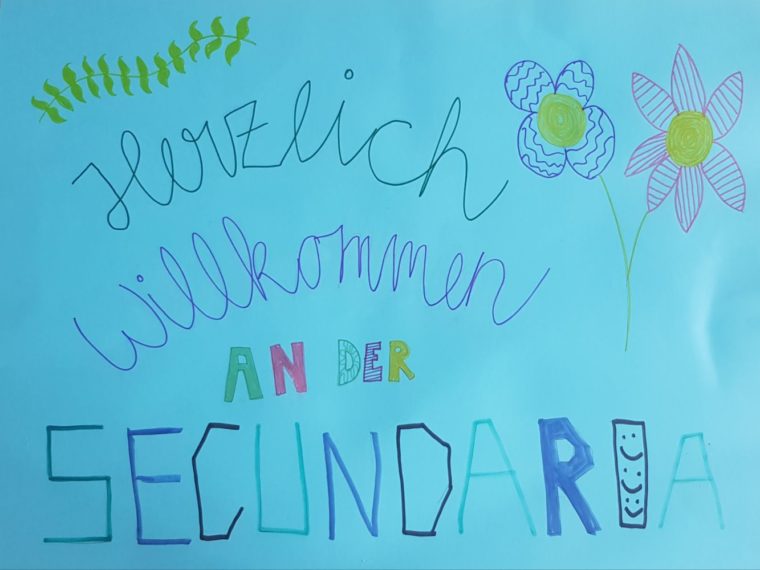 Herzlich
Willkommen
AN DER
SECUNDARIA